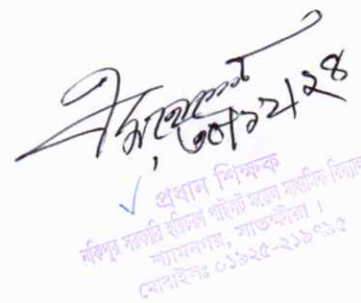 ৩০/১২/২৪
প্রধান শিক্ষক
নকিপুর সরকারি হরিচরণ পাইলট মডেল মাধ্যমিক বিদ্যালয়
শ্যামনগর, সাতক্ষীরা।
মোবাইলঃ